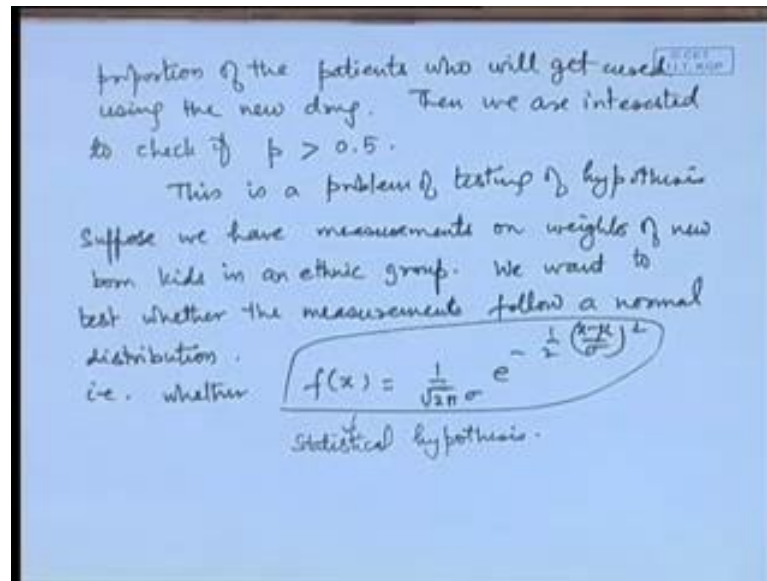 proportion of the patients who will get cured
using the new drug. Then we are interested
to check if p > 0.5.
This is a problem of testing of hypothesis
Suppose we have measurements on weights of new
born kids in an ethnic group. We want to
test whether the measurements follow a normal
distribution.
i.e. whether f(x) = 1/√2π σ e^{-1/2 (x-μ/σ)^2}
Statistical hypothesis.